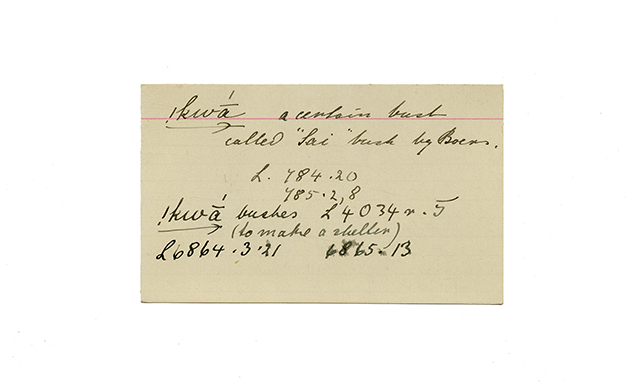 !kwā́ a certain bush
called "Sai" bush by Boers.
L. 784.20
785.2,8
!kwā́ bushes L 4034 r.
(to make a shelter)
L 6864.3.21 6865.13